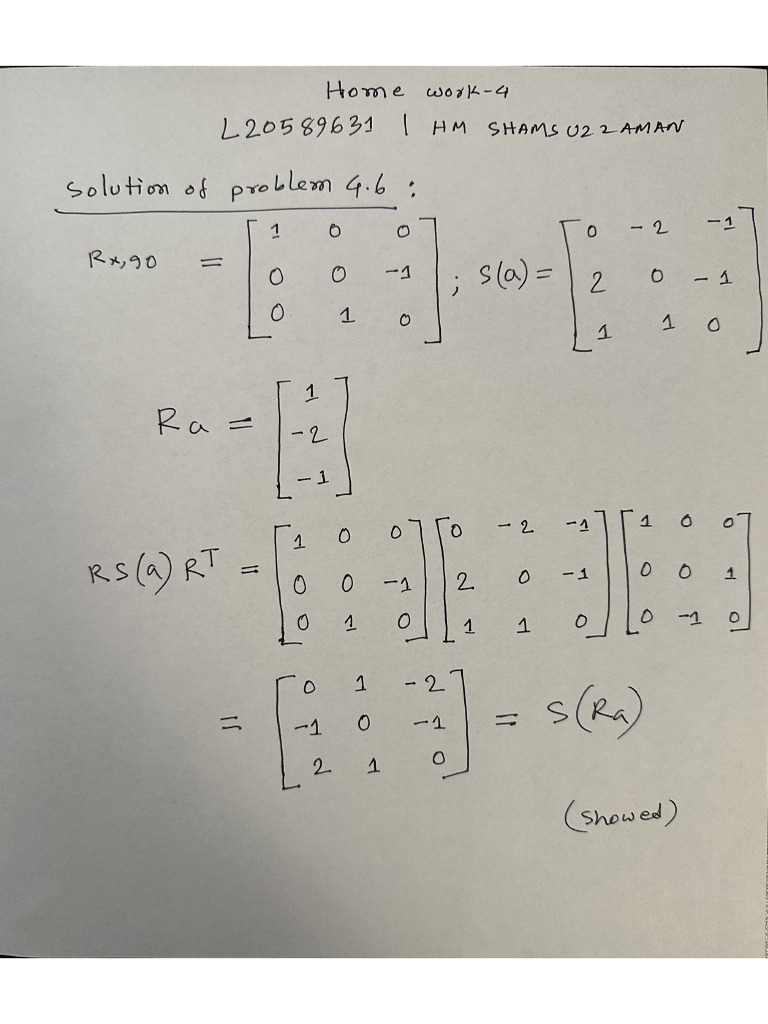 Home work-4
L20589631 | HM SHAMSUZZAMAN
Solution of problem 4.6 :
Rx,90 = [1 0 0; 0 0 -1; 0 1 0] ; S(a) = [0 -2 -1; 2 0 -1; 1 1 0]
Ra = [1; -2; -1]
RS(a) RT = [1 0 0; 0 0 -1; 0 1 0] [0 -2 -1; 2 0 -1; 1 1 0] [1 0 0; 0 0 1; 0 -1 0]
= [0 1 -2; -1 0 -1; 2 1 0] = S(Ra)
(Showed)